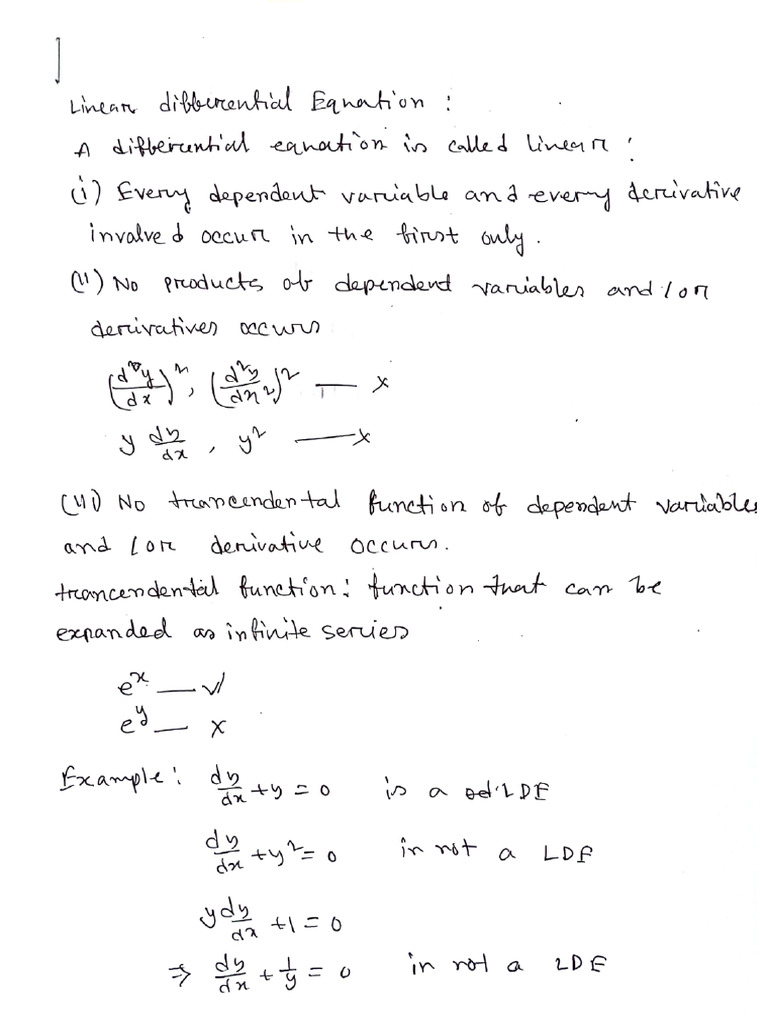 Linear differential Equation :
A differential equation is called linear :
(i) Every dependent variable and every derivative
involved occur in the first only.
(ii) No products of dependent variables and/or
derivatives occurs
(dy/dx)², (d²y/dx²)² — x
y dy/dx , y² — x
(iii) No trancendental function of dependent variables
and/or derivative occurs.
trancendental function : function that can be
expanded as infinite series
eˣ — ✓
e^y — x
Example : dy/dx + y = 0 is a LDE
dy/dx + y² = 0 is not a LDE
y dy/dx + 1 = 0
⇒ dy/dx + 1/y = 0 is not a LDE